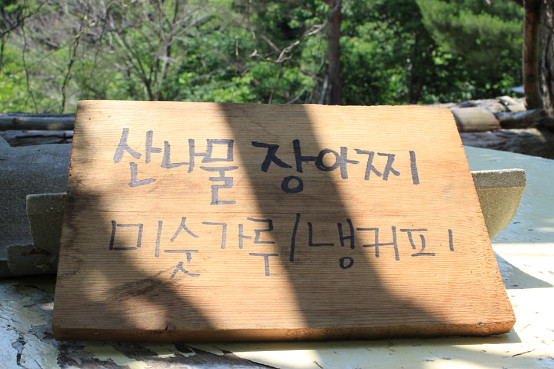 산나물 장아찌
미숫가루/냉커피